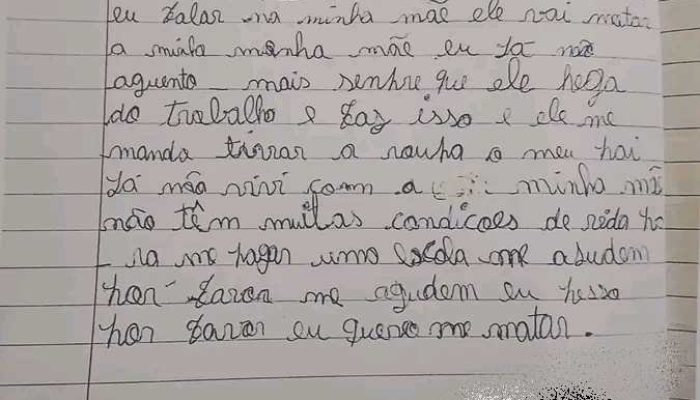 eu zalar na minha mãe ele vai matar
a miála manha mãe eu já não
aguento mais senhre que ele hega
do trabalho e zaz isso e ele me
manda tirrar a rauha o meu hai
já não vivi com a minha mã
não têm muitas condicoes de vida ha
ra me hagar uma escola me asudem
hor zavor me agudem eu hesso
hor zavor eu quero me matar.